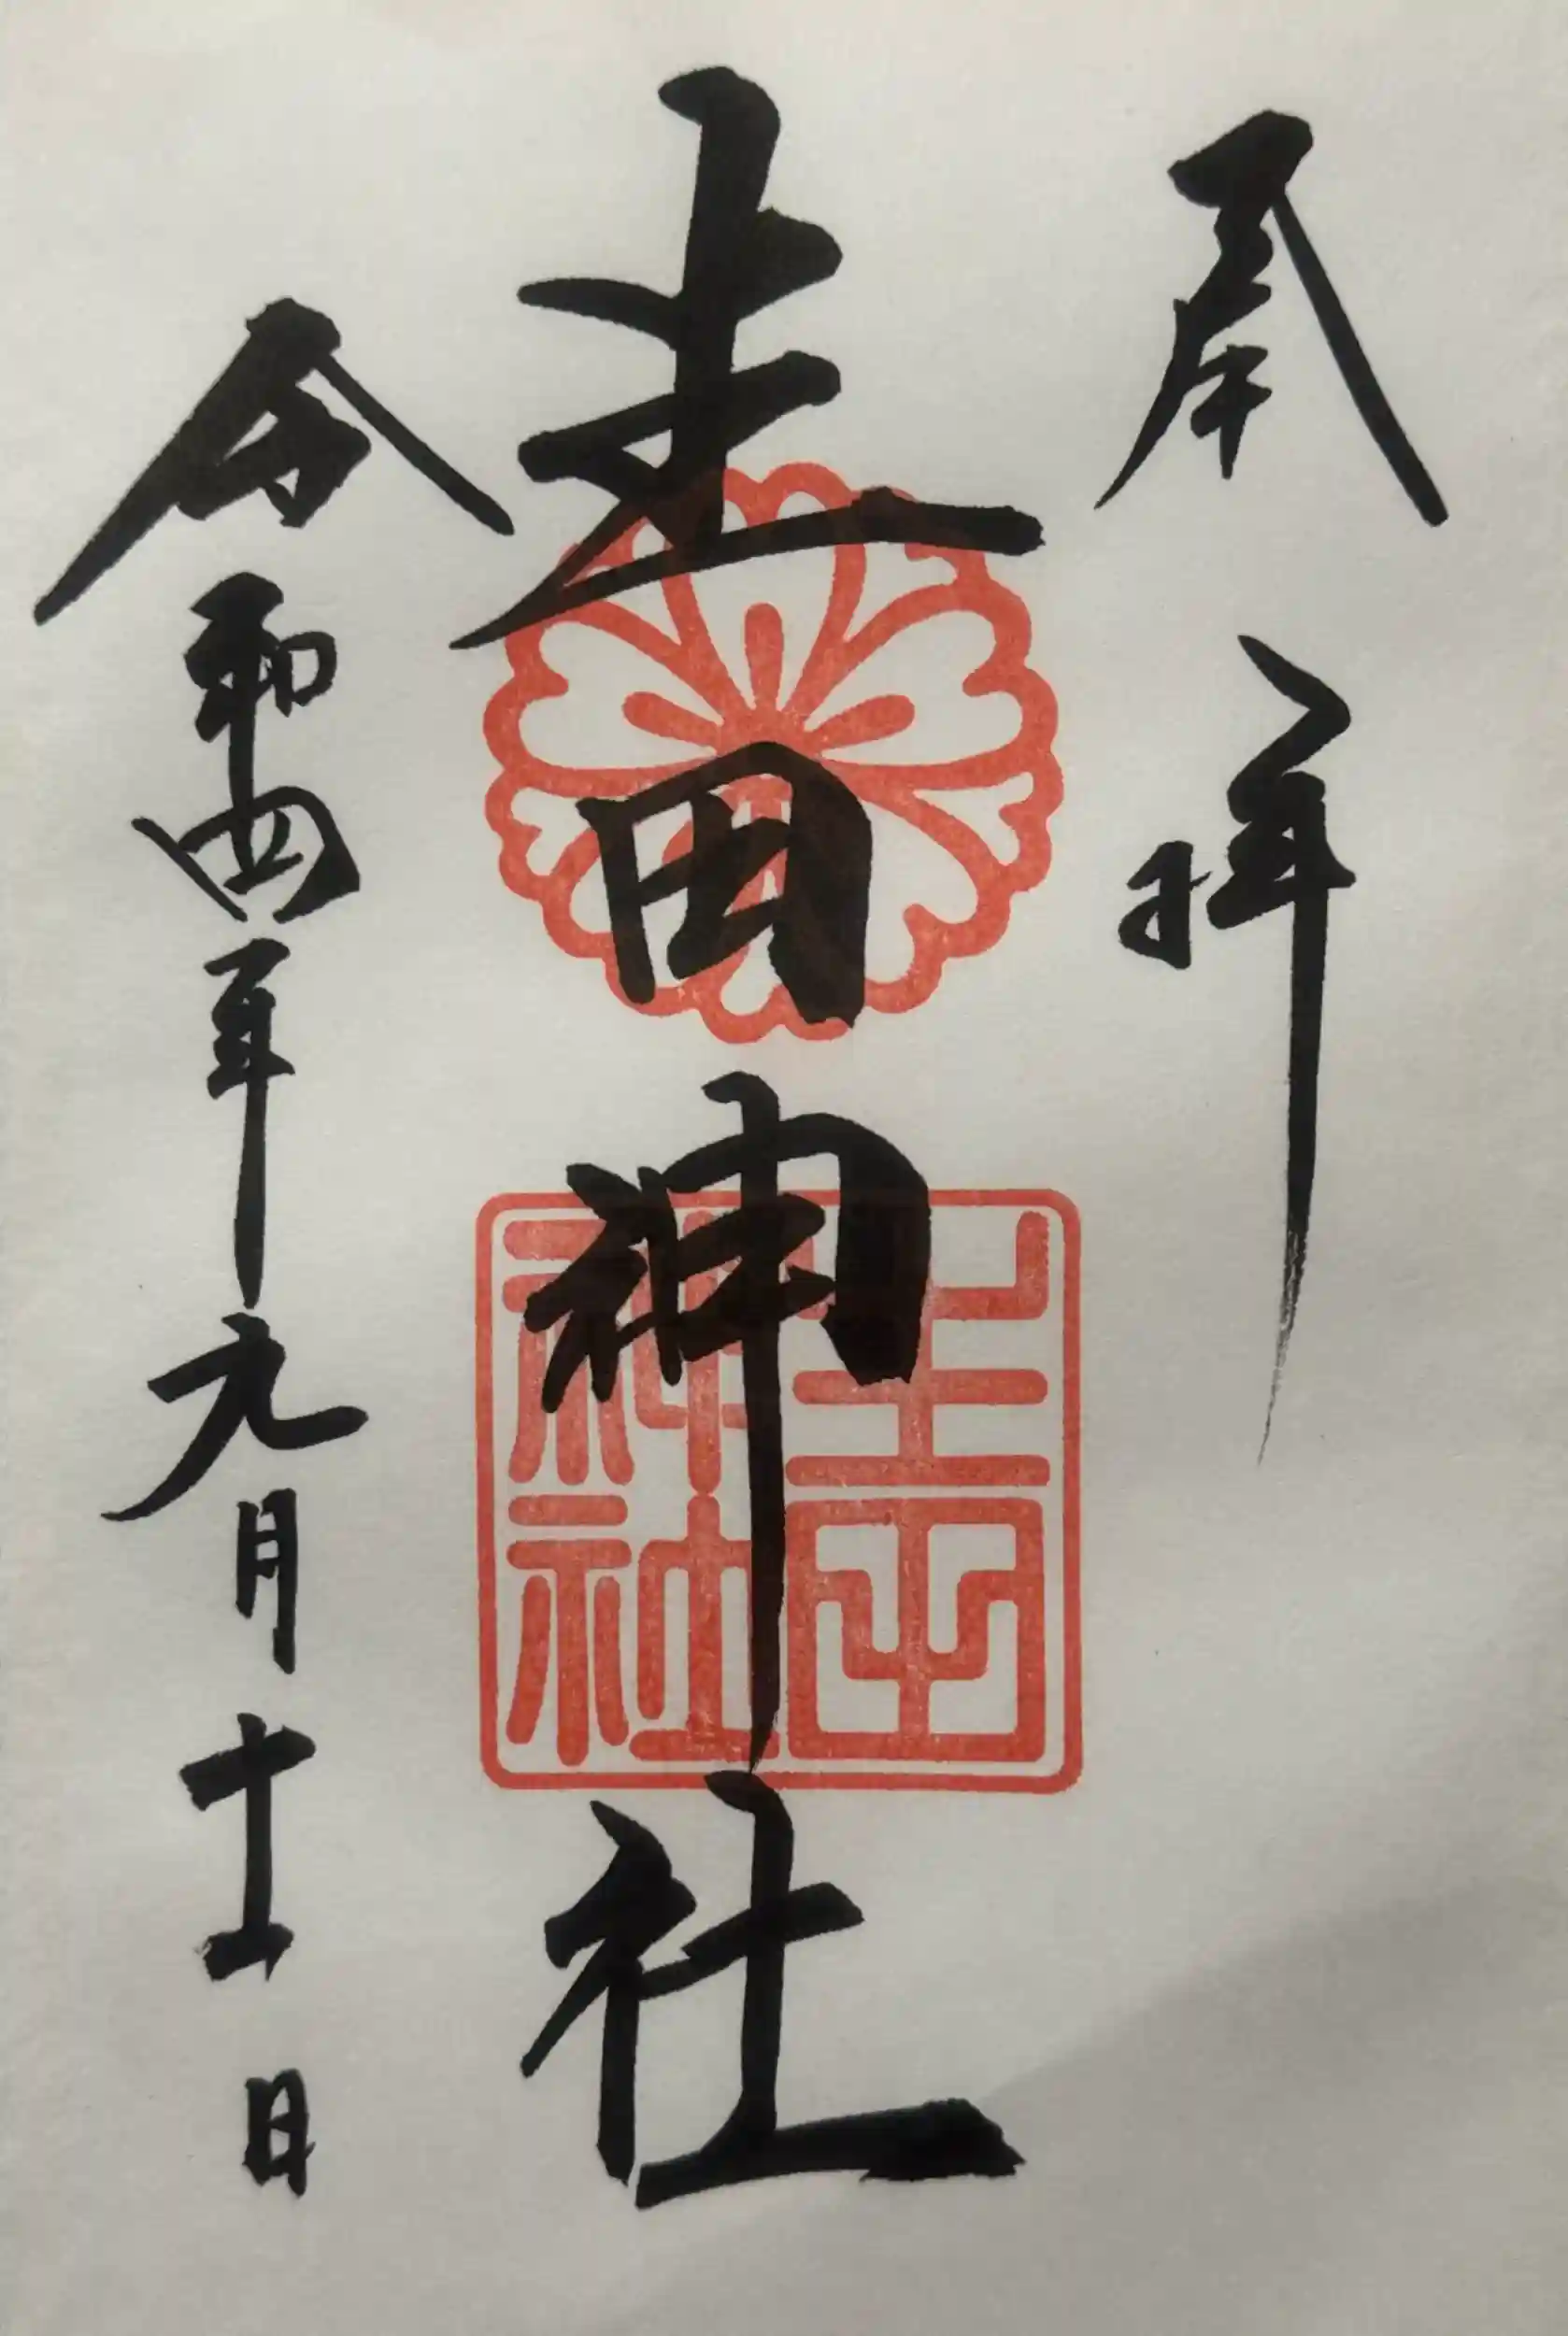 奉拝
走田神社
走田
神社
令和四年九月十一日